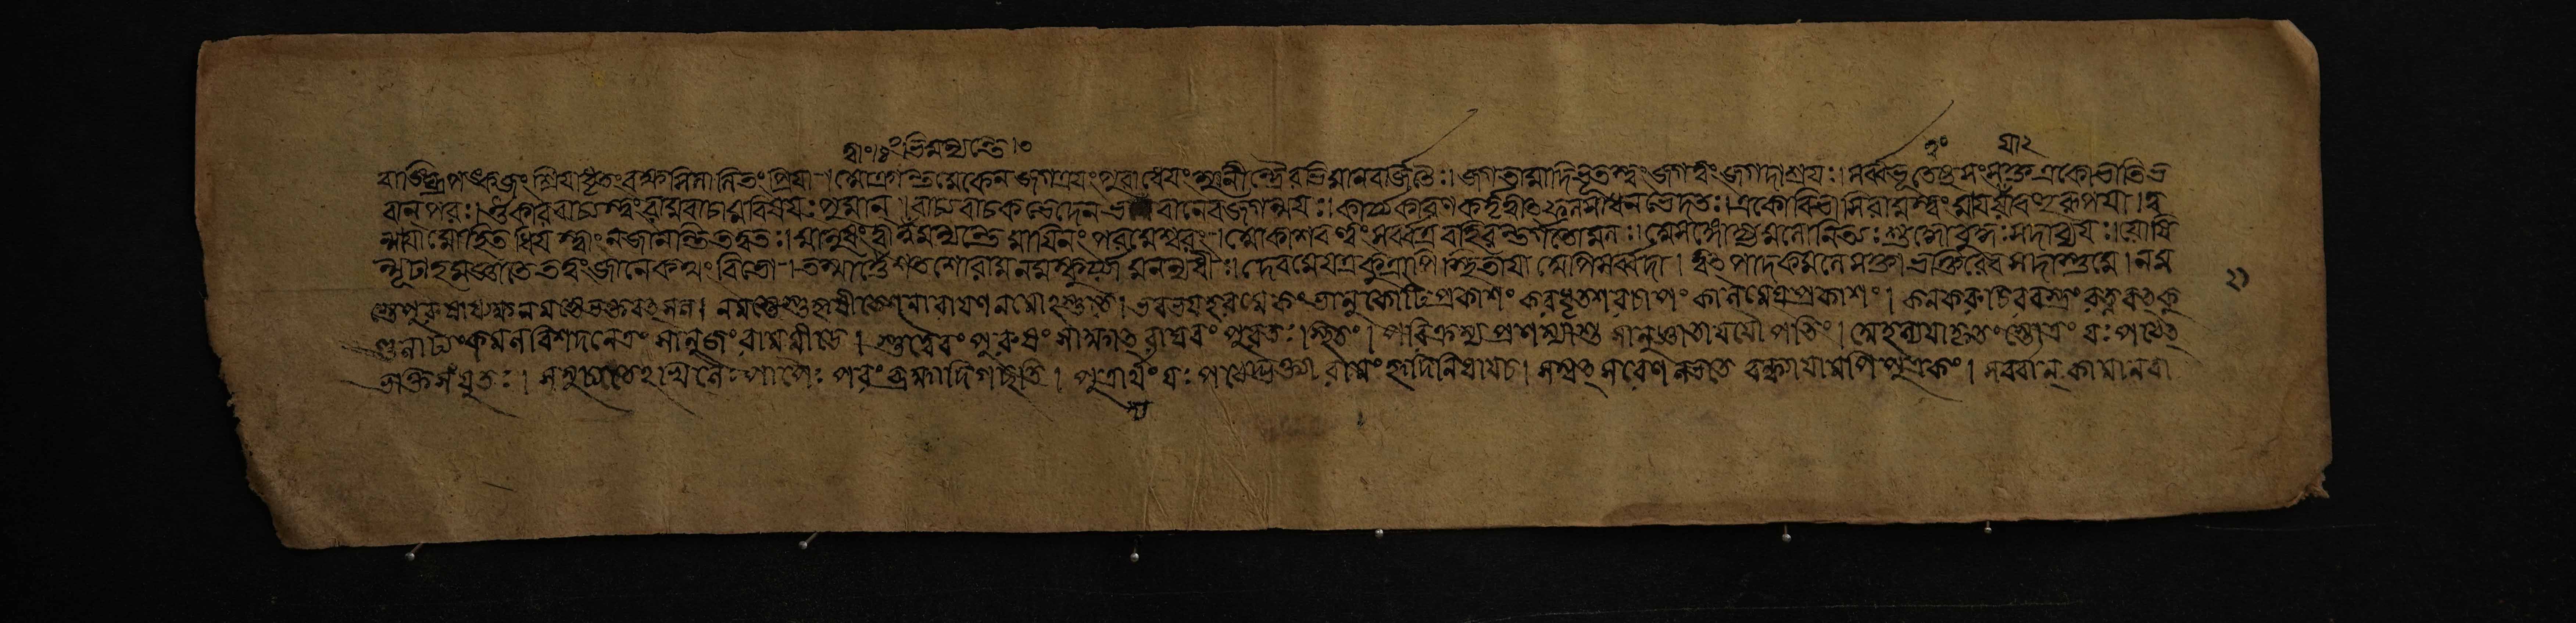 ত্বাং ভিমন্যন্তে ৩
যা ২
বাঙ্ঘ্রিপঙ্কজং শ্রিয়াধৃতং বক্ষসি লালিতং প্রিয়া । আক্রান্তমেকেন জগত্রয়ং পুরাধ্যেয়ং মুনীন্দ্রৈরভিমানবর্জিতৈঃ। জগতামাদিভূতস্ত্বং জগত্ত্বং জগদাশ্রয়ঃ। সর্ব্বভূতেষ্বসংযুক্ত একোভাতিভ
বান পরঃ। ওঁকারবাচ্যস্ত্বং রামবাচামবিষয়ঃ পুমান্ । বাচ্যবাচকভেদেন ভবানেবজগন্ময়ঃ। কার্য্যকারণকর্তৃত্বাৎফলসাধনভেদতঃ। একোবিভাসিরামত্বং মায়য়াবহুরূপয়া। ত্ব
ন্মায়ামোহিতধিয়স্ত্বাং নজানন্তিতত্ত্বতঃ। মানুষং মন্যন্তেমায়িনং পরমেশ্বরং । আকাশবত্ত্বং সর্ব্বত্রবহিরন্তর্গতোমলঃ। অসঙ্গোহ্যমলোনিত্যঃ শুদ্ধোবুদ্ধঃ সদাব্যয়ঃ। যোষি
ন্মূঢাহমজ্ঞাতেতত্ত্বং জানেকথং বিভো । তস্মাত্তেশতশোরামনমস্কুর্য্যামনন্যধীঃ। দেবমেযত্রকুত্রাপিস্থিতায়াঅপিসর্ব্বদা। ত্বৎপাদকমলেসক্তাভক্তিরেবসদাস্তুমে। নম
স্তেপুরুষাধ্যক্ষনমস্তেভক্তবৎসল। নমস্তেস্তুহৃষীকেশনারায়ণনমোঽস্তুতে। ভবভয়হরমেকং ভানুকোটিপ্রকাশং করধৃতশরচাপং কালমেঘপ্রকাশং । কনকরুচিরবস্ত্রং রত্নবৎকু
ণ্ডলাঢ্যং কমলবিশদনেত্রং সানুজং রামমীডে। স্তুত্বৈবং পুরুষং সাক্ষাৎ রাঘবং পুরতঃ স্থিতং। পরিক্রম্যপ্রণম্যাশুসানুজ্ঞাতাযযৌপতিং। অহল্যয়াকৃতং স্তোত্রং যঃ পঠেৎ
ভক্তিসংযুতঃ। সমুচ্যতেঽখিলৈঃপাপৈঃ পরং ব্রহ্মাধিগচ্ছতি। পুত্রার্থং যঃ পঠেদ্ভক্ত্যারামং হৃদিনিধায়চ। সম্বৎসরেণলভতেবন্ধ্যায়ামপিপুত্রকং। সর্ব্বান্ কামানবা
২১